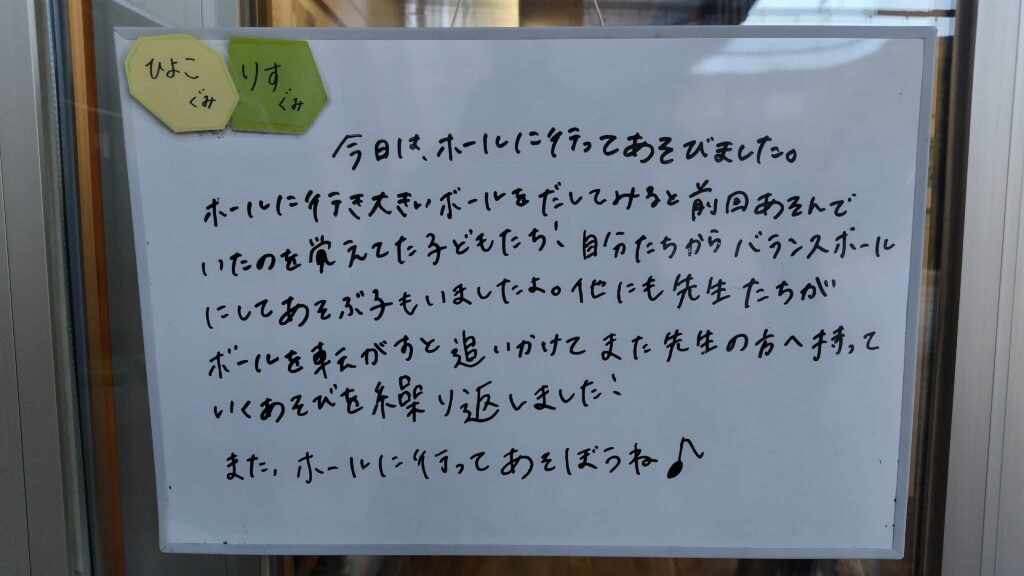 ひよこ
ぐみ
りす
ぐみ
今日は、ホールに行ってあそびました。
ホールに行き大きいボールをだしてみると前回あそんで
いたのを覚えてた子どもたち! 自分たちからバランスボール
にしてあそぶ子もいましたよ。他にも先生たちが
ボールを転がすと追いかけてまた先生の方へ持って
いくあそびを繰り返しました!
また、ホールに行ってあそぼうね♪